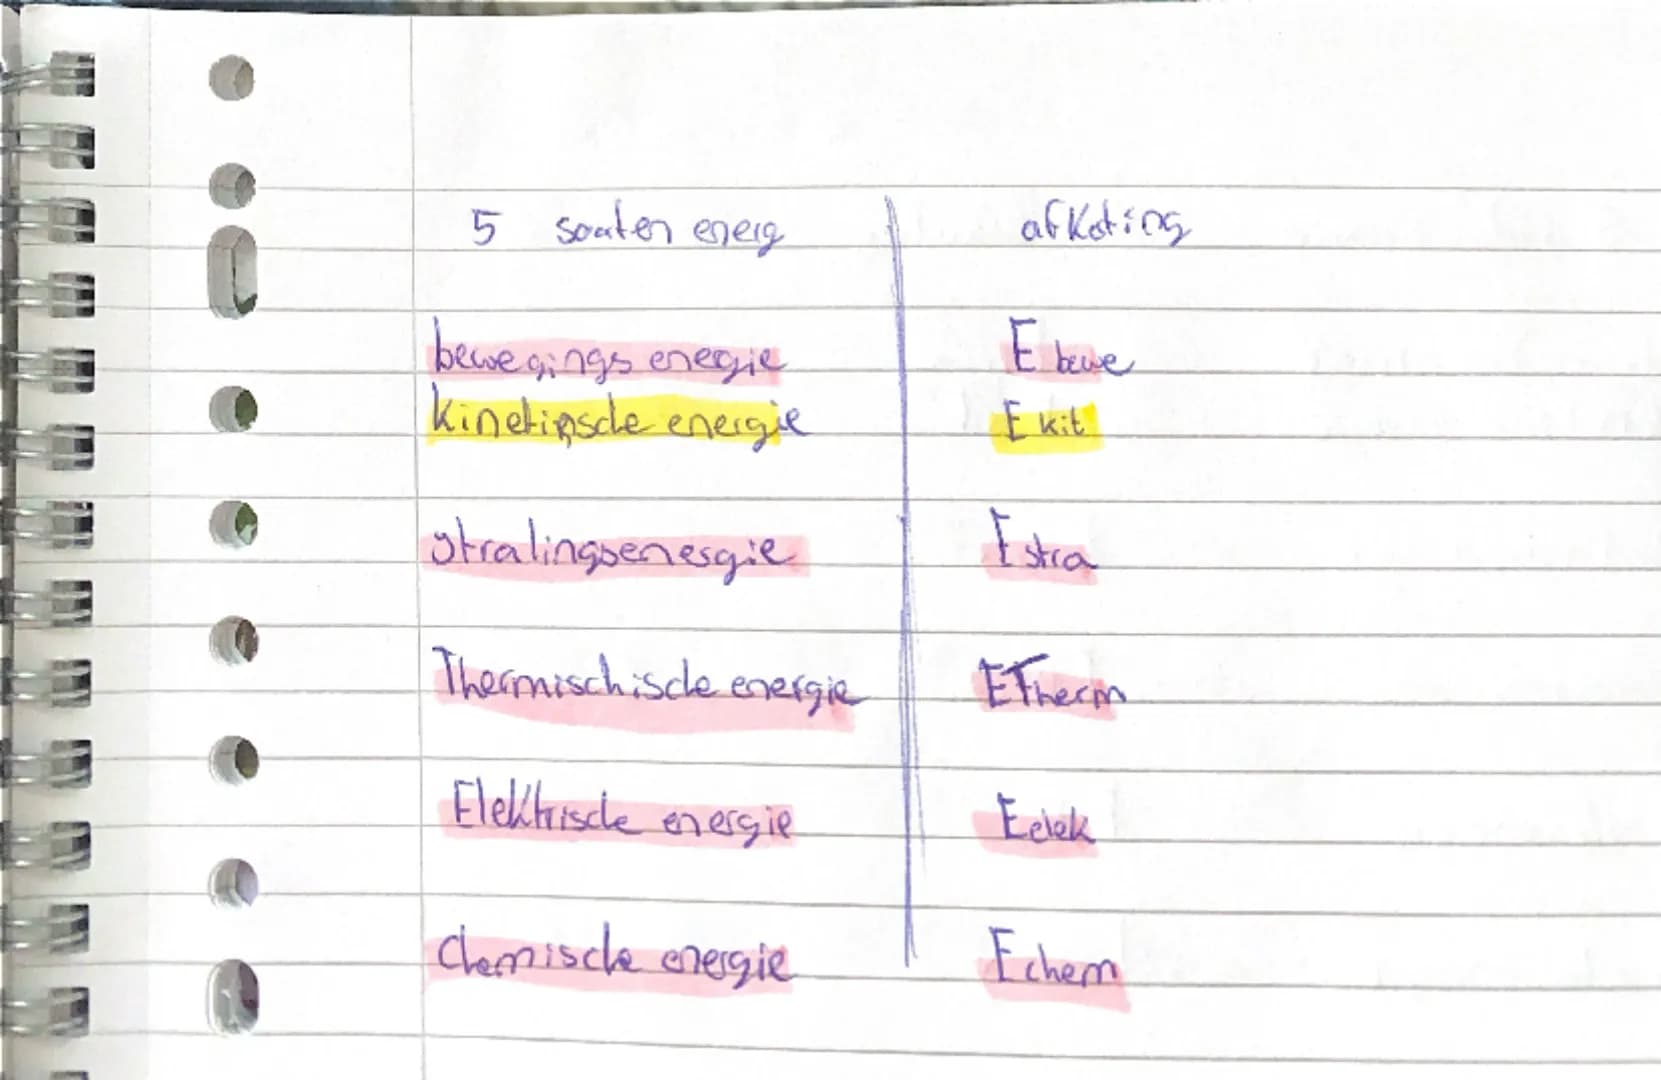 5 soorten energ	afkoting
bewegings energie	E bewe
kinetinsche energie	E kit
stralingsenergie	E stra
Thermischische energie	ETherm
Elektrische energie	Eelek
Chemische energie	Echem